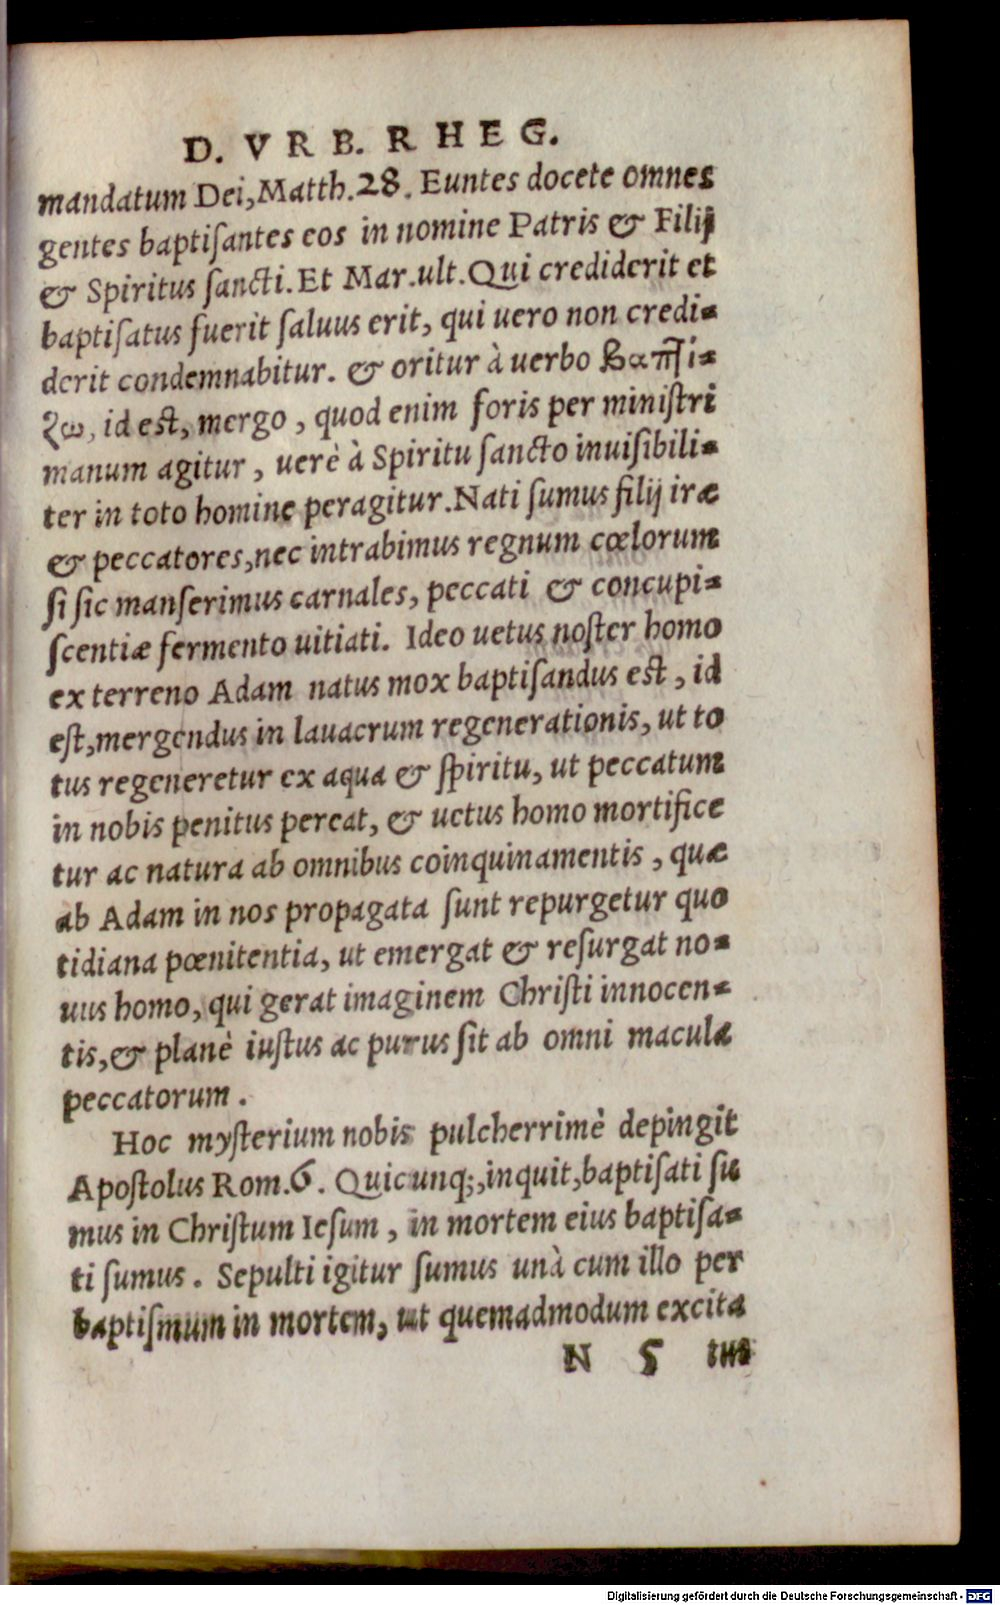 D. V R B. R H E G.
mandatum Dei, Matth. 28. Euntes docete omnes
gentes baptiſantes eos in nomine Patris & Filij
& Spiritus ſancti. Et Mar. ult. Qui crediderit et
baptiſatus fuerit ſaluus erit, qui uero non credi-
derit condemnabitur. & oritur à uerbo βαπτί-
ζω, id est, mergo, quod enim foris per miniſtri
manum agitur, uerè à Spiritu ſancto inuiſibili-
ter in toto homine peragitur. Nati ſumus filij iræ
& peccatores, nec intrabimus regnum cœlorum
ſi ſic manſerimus carnales, peccati & concupi-
ſcentiæ fermento uitiati. Ideo uetus noſter homo
ex terreno Adam natus mox baptiſandus eſt, id
eſt, mergendus in lauacrum regenerationis, ut to
tus regeneretur ex aqua & ſpiritu, ut peccatum
in nobis penitus pereat, & uetus homo mortifice
tur ac natura ab omnibus coinquinamentis, quæ
ab Adam in nos propagata ſunt repurgetur quo
tidiana pœnitentia, ut emergat & reſurgat no-
uus homo, qui gerat imaginem Chriſti innocen-
tis, & planè iuſtus ac purus ſit ab omni macula
peccatorum.
Hoc myſterium nobis pulcherrimè depingit
Apoſtolus Rom. 6. Quicunq;, inquit, baptiſati ſu
mus in Chriſtum Ieſum, in mortem eius baptiſa-
ti ſumus. Sepulti igitur ſumus unà cum illo per
baptiſmum in mortem, ut quemadmodum excita
N 5 tus
Digitalisierung gefördert durch die Deutsche Forschungsgemeinschaft - DFG